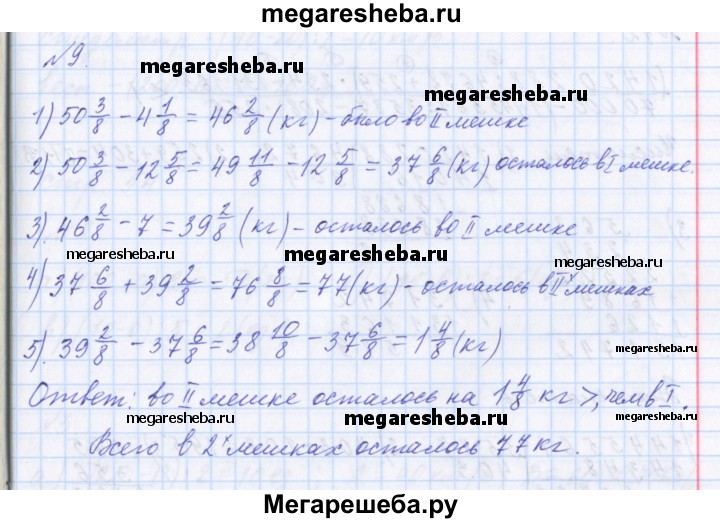 megaresheba.ru
№9.
megaresheba.ru
megaresheba.ru
1) 50 3/8 - 4 1/8 = 46 2/8 (кг) - было во II мешке
2) 50 3/8 - 12 5/8 = 49 11/8 - 12 5/8 = 37 6/8 (кг) осталось в I мешке.
3) 46 2/8 - 7 = 39 2/8 (кг) - осталось во II мешке
megaresheba.ru
megaresheba.ru
megaresheba.ru
4) 37 6/8 + 39 2/8 = 76 8/8 = 77 (кг) - осталось в II мешках
megaresheba.ru
megaresheba.ru
5). 39 2/8 - 37 6/8 = 38 10/8 - 37 6/8 = 1 4/8 (кг)
Ответ: во II мешке осталось на 1 4/8 кг >, чем в I.
megaresheba.ru
megaresheba.ru
Всего в 2х мешках осталось 77 кг.
Мегарешеба.ру